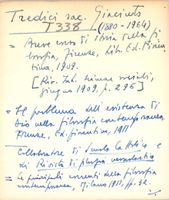 Tredici sac. Giacinto
T 338 (1880-1964)
= Breve corso di storia della fi-
losofia, Firenze, Libr. Ed. Fioren-
tina, 1909.
[Riv. Int. scienze sociali,
giugno 1909, p. 295]
= Il problema dell'esistenza di
Dio nella filosofia contemporanea,
Firenze, Ed. fiorentina, 1911
Collaboratore di Scuola Cattolica e
di Rivista di filosofia neoscolastica
= Le principali correnti della filosofia
contemporanea, Milano 1911, p. 32.